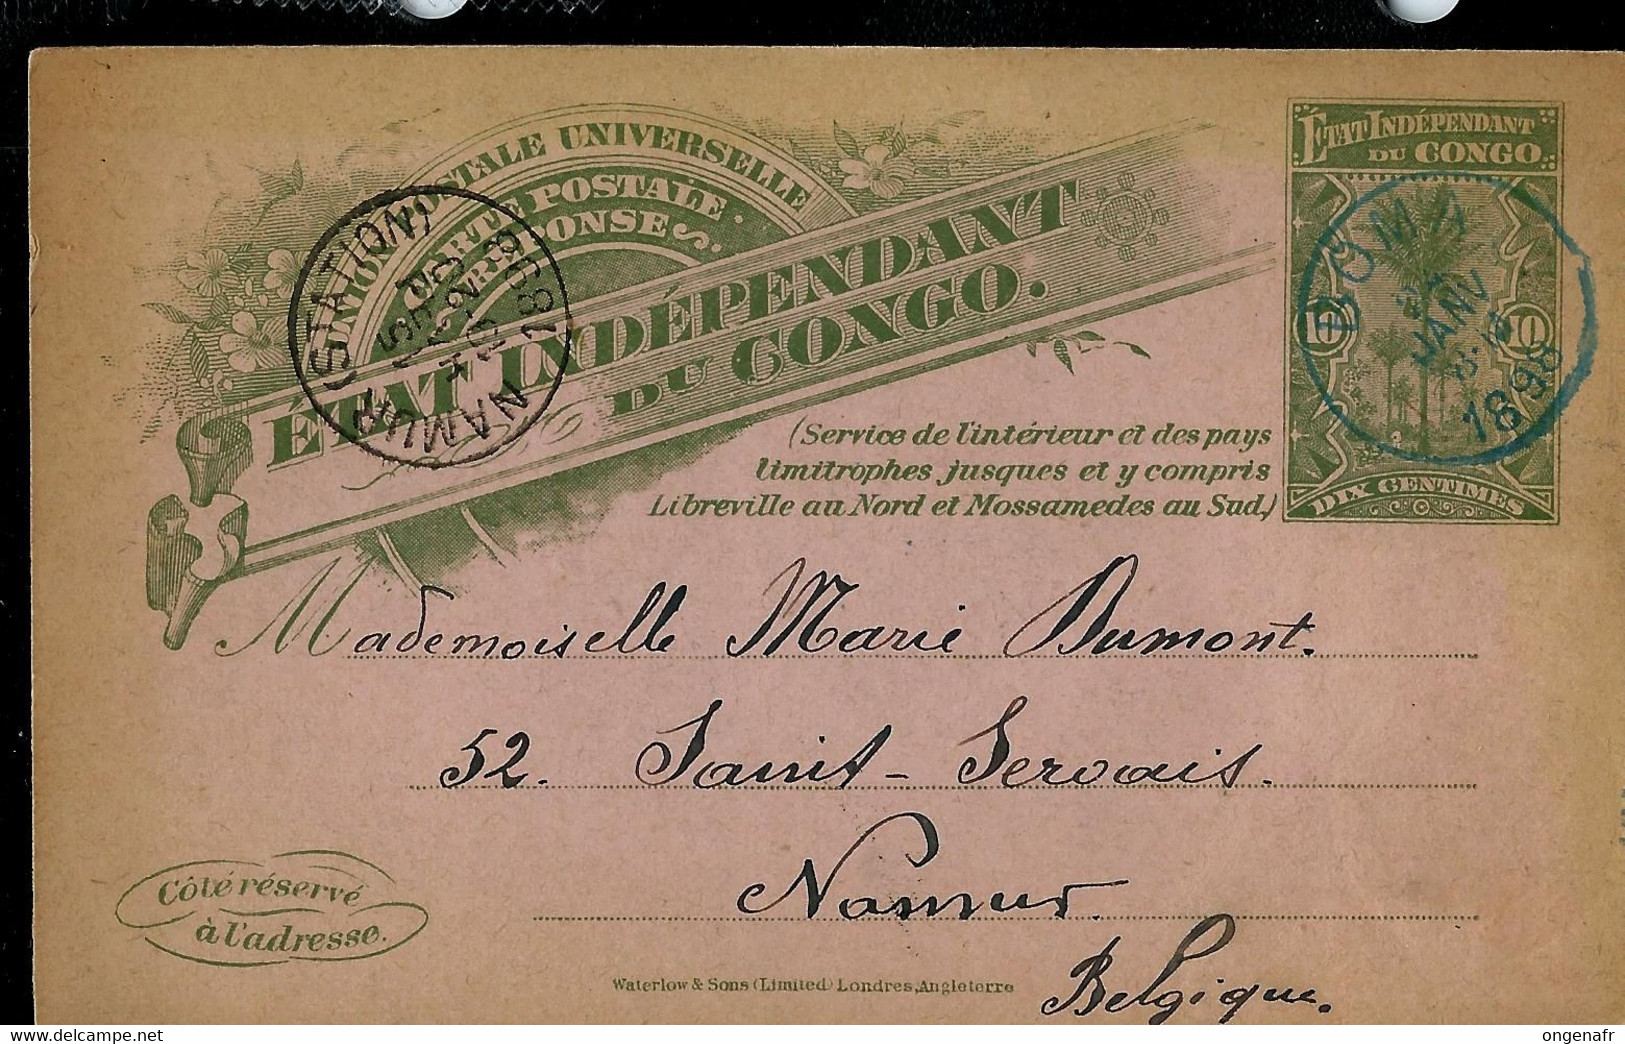 UNION POSTALE UNIVERSELLE
CARTE POSTALE
RÉPONSE
ÉTAT INDÉPENDANT
DU CONGO.
(Service de l'intérieur et des pays
limitrophes, jusques et y compris
Libreville au Nord et Mossamedes au Sud.)
ÉTAT INDÉPENDANT
DU CONGO
10 10
DIX CENTIMES
BOMA
JANV
1898
NAMUR (STATION)
1898
Mademoiselle Marie Dumont.
52. Saint-Servais.
Namur.
Belgique.
Côté réservé
à l'adresse.
Waterlow & Sons (Limited) Londres, Angleterre
ongenafr